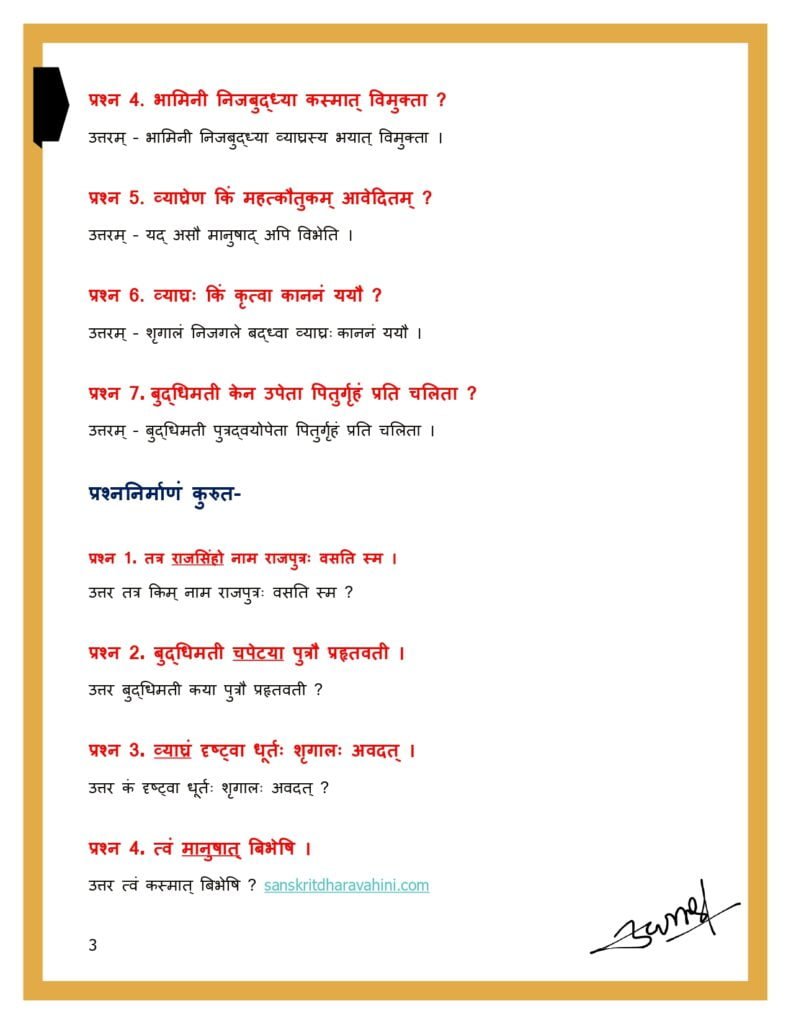 प्रश्न 4. भामिनी निजबुद्ध्या कस्मात् विमुक्ता ?
उत्तरम् - भामिनी निजबुद्ध्या व्याघ्रस्य भयात् विमुक्ता ।
प्रश्न 5. व्याघ्रेण किं महत्कौतुकम् आवेदितम् ?
उत्तरम् - यद् असौ मानुषाद् अपि विभेति ।
प्रश्न 6. व्याघ्रः किं कृत्वा काननं ययौ ?
उत्तरम् - शृगालं निजगले बद्ध्वा व्याघ्रः काननं ययौ ।
प्रश्न 7. बुद्धिमती केन उपेता पितुर्गृहं प्रति चलिता ?
उत्तरम् - बुद्धिमती पुत्रद्वयोपेता पितुर्गृहं प्रति चलिता ।
प्रश्ननिर्माणं कुरुत-
प्रश्न 1. तत्र राजसिंहो नाम राजपुत्रः वसति स्म ।
उत्तर तत्र किम् नाम राजपुत्रः वसति स्म ?
प्रश्न 2. बुद्धिमती चपेटया पुत्रौ प्रहृतवती ।
उत्तर बुद्धिमती कया पुत्रौ प्रहृतवती ?
प्रश्न 3. व्याघ्रं दृष्ट्वा धूर्तः शृगालः अवदत् ।
उत्तर कं दृष्ट्वा धूर्तः शृगालः अवदत् ?
प्रश्न 4. त्वं मानुषात् बिभेषि ।
उत्तर त्वं कस्मात् बिभेषि ? sanskritdharavahini.com
3